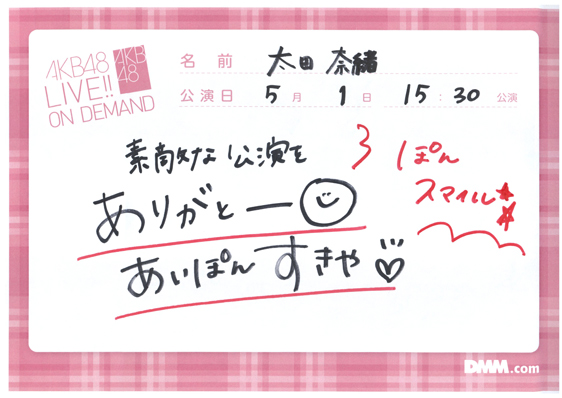 AKB48
LIVE!!
ON DEMAND
AKB
48
名前 太田 奈緒
公演日 5月 1日 15:30 公演
素敵な公演を
ありがとー
あいぽんすきや
3 ぽん
スマイル
DMM.com